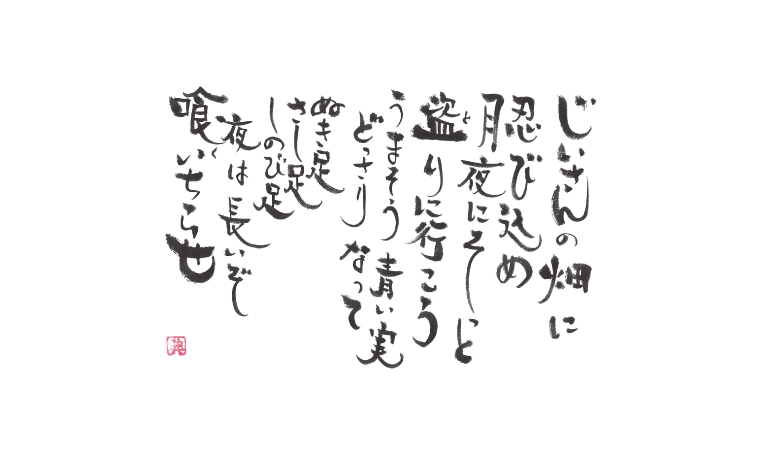 じいさんの畑に
忍び込め
月夜にそーっと
盗りに行こう
うまそう青い実
どっさりなって
ぬき足
さし足
しのび足
夜は長いぞ
喰いちらせ